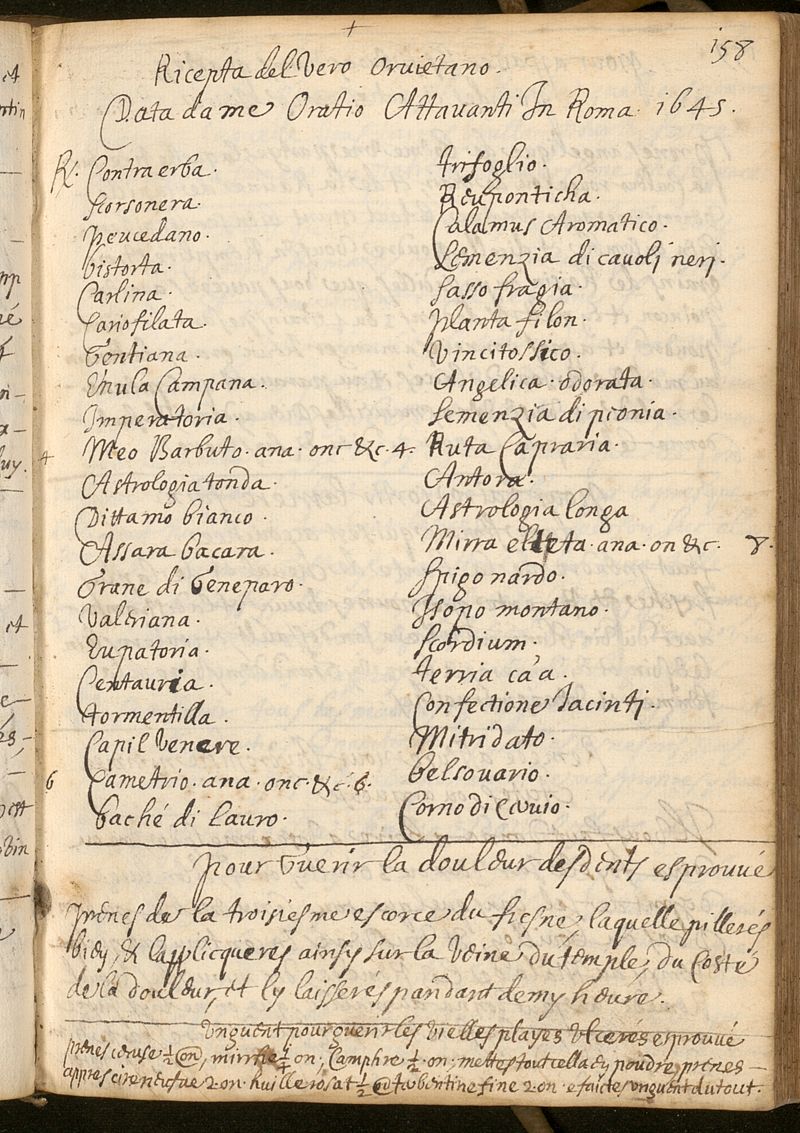 158
Ricepta del Vero Oruietano.
Data da me Oratio Attauanti In Roma 1645.
R. Contra erba.
Scorsonera.
Peucedano.
bistorta.
Carlina.
Cariofilata.
Gentiana.
Enula Campana.
Imperatoria.
4 Meo Barbuto. ana. onc &c. 4.
Astrologia tonda.
Dittamo bianco.
Assara bacara.
Grane di Geneparo.
Valeriana.
Eupatoria.
Centauria.
tormentilla.
Capil Venere.
6 Cametrio. ana. onc. &c. 6.
baché di Lauro.
trifoglio.
Reuponticha.
Calamus Aromatico.
Semenzia di cauolj nerj.
Sassofragia.
planta filon.
Vincitossico.
Angelica. odorata.
Semenzia di pionia.
Ruta Capraria.
Antora.
Astrologia longa
Mirra eletta. ana. on &c. 8.
Spigo nardo.
Isopo montano.
Scordium.
terria ca'a.
Confectione Jacinti.
Mitridato.
belsouario.
Corno di Ceruio.
pour Guerir la douleur des dents esprouué
prenés de la troisiesme escorce du fresne, laquelle pillerés
bien, & lapplicqueres ainsy sur la Veine du temple, du Costé
de la douleur, et ly laisserés pandant demy heure.
Unguent pour guerir les vielles playes Ulcerés esprouué
prenés ceruse ½ on, mirrhe ½ on, Camphre ½ on. mettes tout cella en poudre, prenes
appres cire neufue 2. on. huille rosat ½ tourbentine fine 2. on. e faictes unguent du tout.